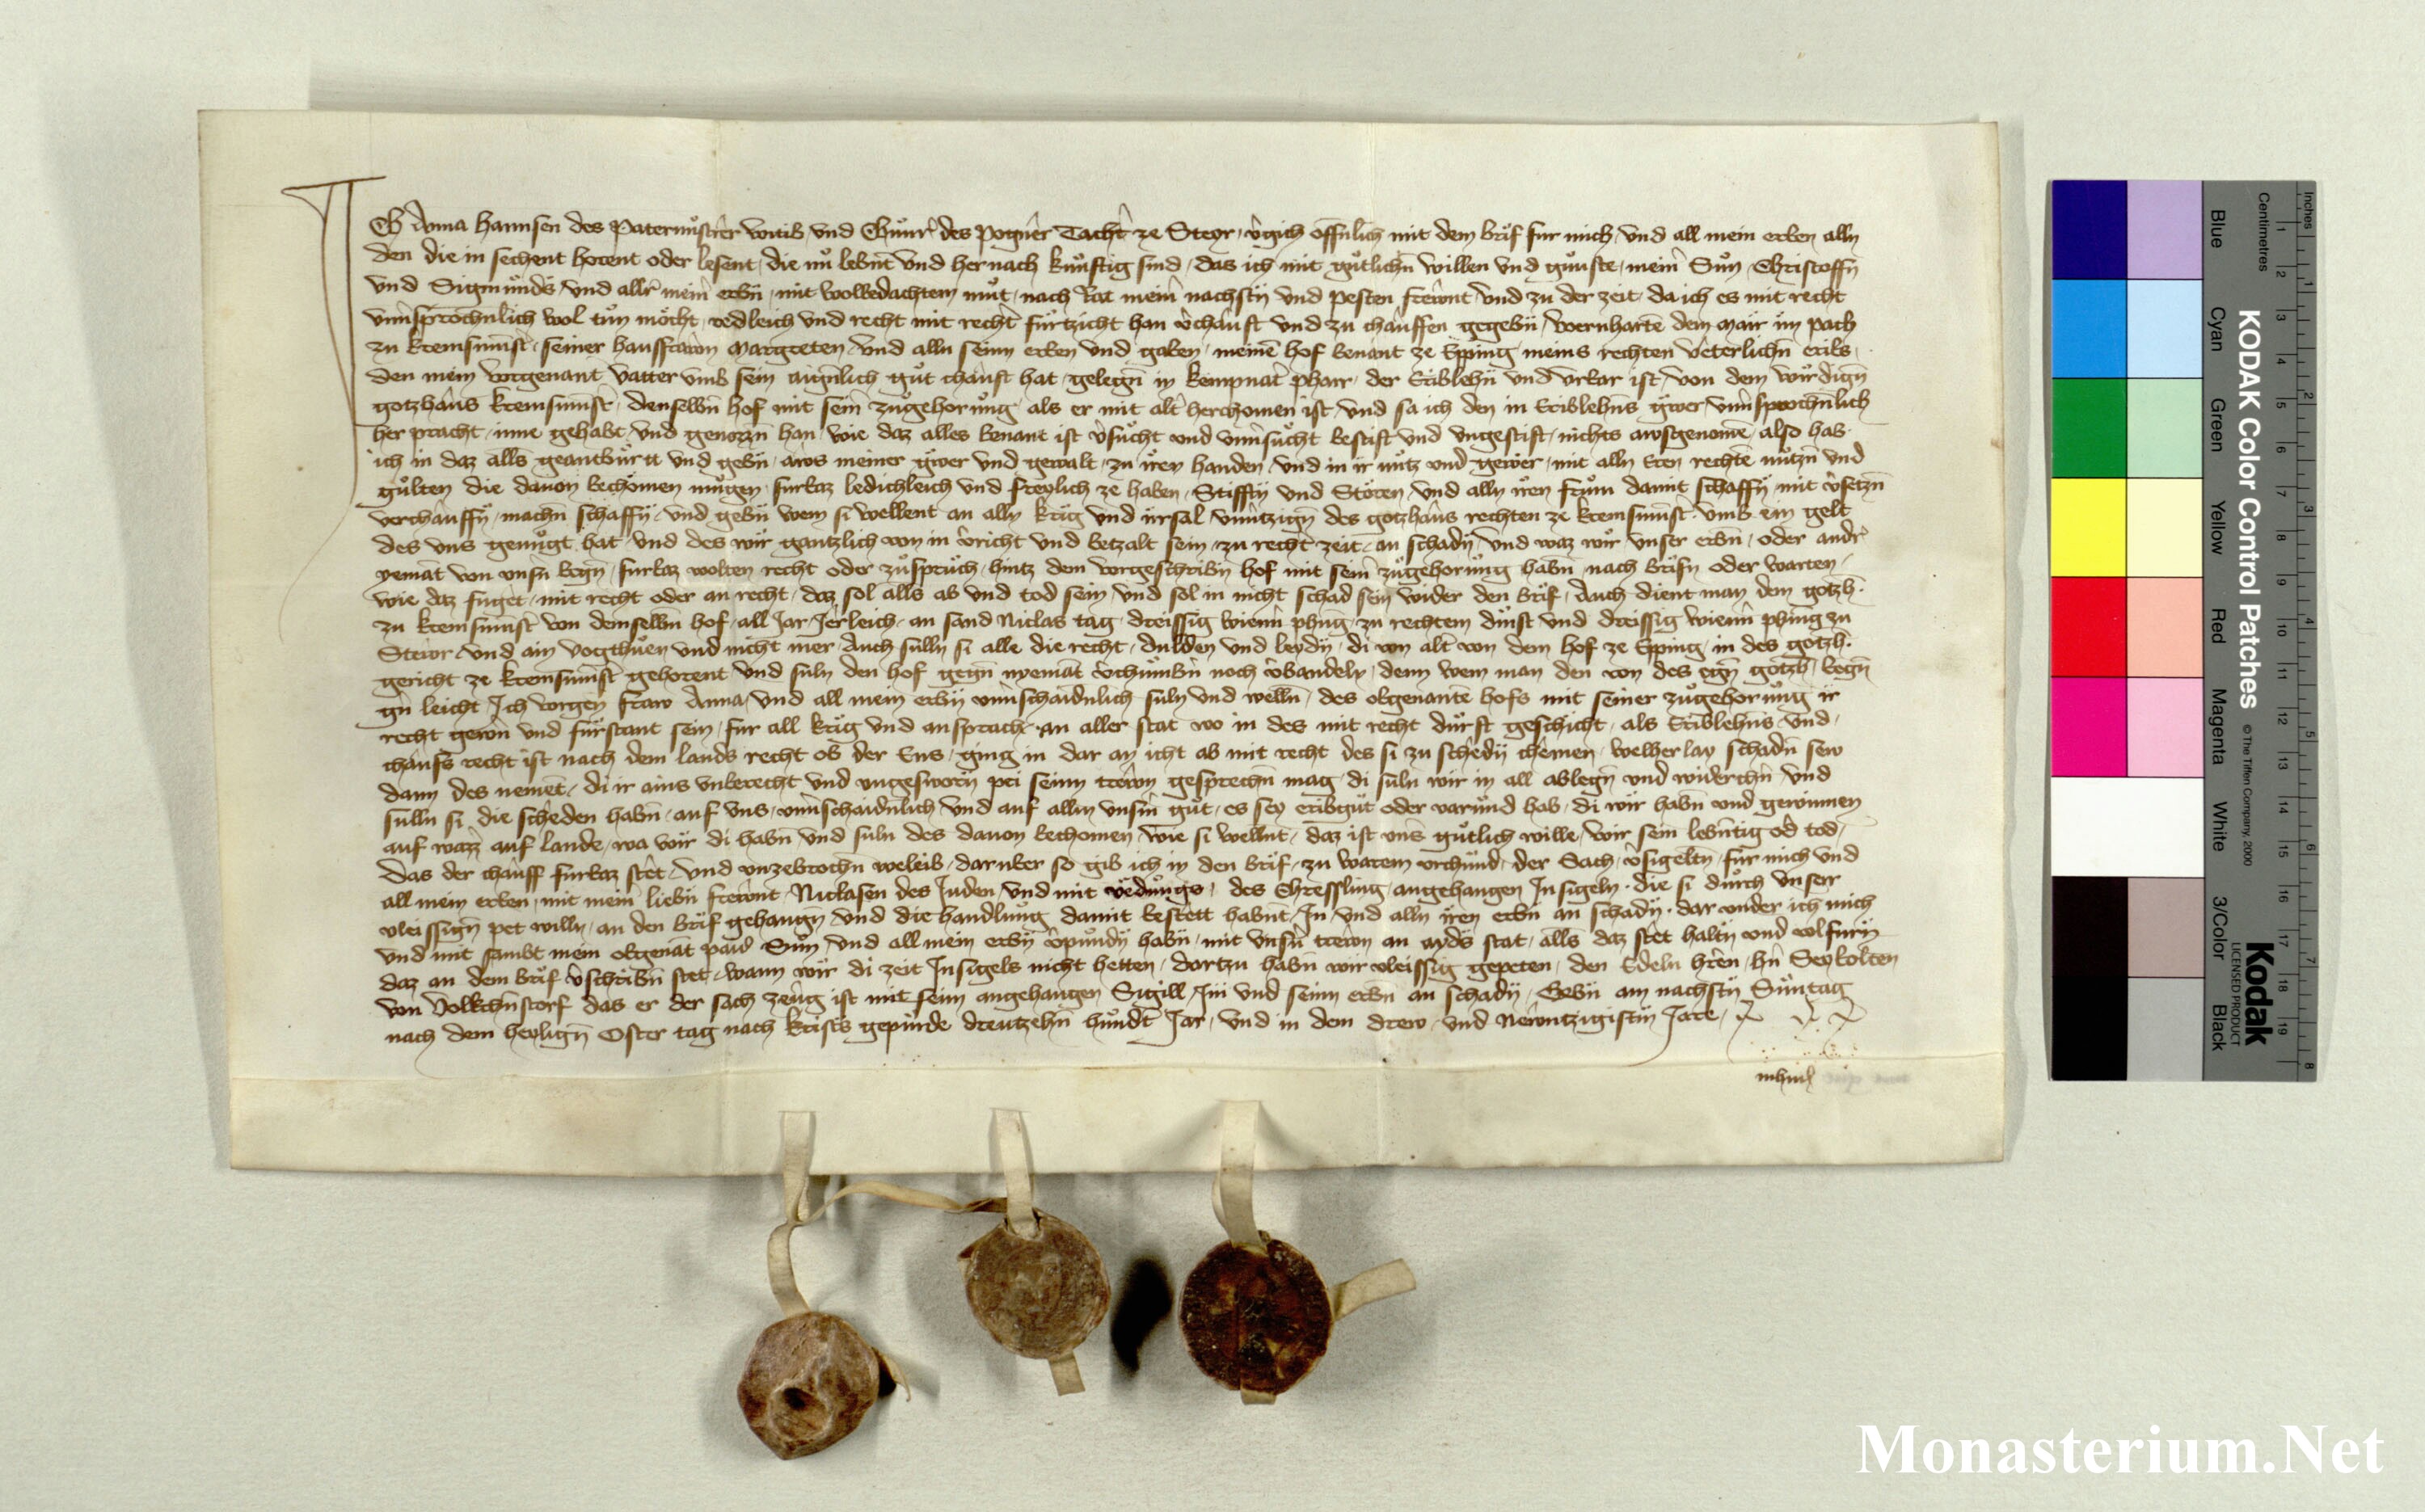 Ich Anna hannsen des Paternůstrer witib vnd Chůnr̄ des pognêr Tacht̂ ze Steyr v̂gich offn̄lich mit dem brif fur mich vnd all mein erben alln
den die in sechent horent oder lesent die nů lebn̄t vnd her nach kůnftig sind das ich mit gůtlichn̄ willen vnd gůnste mein̂ Sůn Christoffn̄
vnd Sigmůnds vnd allr̂ mein̂ erbn̄ mit wolbedachtem můt nach Rat mein̂ nachstn̄ vnd pesten frewnt vnd zu der zeit da ich es mit recht
vnûsprochnlich wol tůn mocht redleich vnd recht mit recht̂ fürtzicht han v̂chauft vnd zu chauffen gegebn̄ wernhartē dem mair im pach
zu kremsmūnst̂ seiner hausfrawn margreten vnd alln seinn erben vnd gaben meinē hof benant ze Epping meins rechten veterlichn̄ eribs
den mein vorgenant vatter vmb sein aignlich gůt chauft hat gelegn̄ in kempnat̂ pharr der Eriblehn̄ vnd vrbar ist von dem wirdign̄
gotzhaus kremsmūnst̂ denselbn̄ hof mit sein̂ zůgehorůng als er mit alt̂ herchomen ist vnd sa ich den in Eriblehns gwer vnûsprochnlich
her pracht inne gehabt vnd genozzn̄ han wie daz alles benant ist v̂sůcht vnd vnûsůcht bestift vnd vngestift nichts awsgenomē also hab
ich in daz alls geantbürtt vnd gebn̄ aws meiner gwer vnd gewalt zu iren handen vnd in ir nůtz vnd gewer mit alln Ern rechtē nůtzn̄ vnd
gůlten die dauon bechomen můgen furbaz ledichleich vnd freylich ze haben Stifftn̄ vnd Storen vnd alln iren frům damit schaffn̄ mit v̂setzn̄
verchauffn̄ machn̄ schaffn̄ vnd gebn̄ wem si wellent an alln krig vnd irrsal vnûtzign̄ des gotzhaus rechten ze kremsmūnst̂ vmb ein gelt
des vns genůgt hat vnd des wir gantzlich von in v̂richt vnd betzalt sein zu recht̂ zeit an schadn̄ vnd waz wir vnser erbn̄ oder andr̂
yemāt von vnsn̄ wegn̄ furbaz wolten recht oder zůsprüch hintz dem vorgeschribn̄ hof mit sein̂ zůgehorung habn̄ nach brifn̄ oder warten
wie daz fuget mit recht oder an recht daz sol alls ab vnd tod sein vnd sol in nicht schad sein wider den brif Auch dient man dem gotzh.
zu kremsmūnst̂ von demselbn̄ hof all Jar Jerleich an sand Niclas tag dreissig wienn̂ phn̄g zu rechtem dinst vnd dreissig wienn̂ phn̄g zu
Stewr vnd ain vogthuen vnd nicht mer Auch sulln si alle die recht dulden vnd leydn̄ di von alt̂ von dem hof ze Epping in des gotzh.
gericht ze kremsmūnst̂ gehorent vnd suln den hof gegn̄ nyemāt v̂chůmbn̄ noch v̂bandeln denn wem man den von des egn̄ gotzh wegn̄
gn̄ leicht Ich vorgen̄ fraw Anna vnd all mein erbn̄ vnûschaidnlich suln vnd welln̄ des obgenantē hofs mit seiner zůgehorůng ir
recht gewern̄ vnd fürstant sein fur all krig vnd ansprach an aller stat wo in des mit recht dürft geschicht als Eriblehns vnd
chaufs recht ist nach dem lands recht ob der Ens ging in dar an icht ab mit recht des si zu schedn̄ chêmen welherlay schadn̄ sew
dann des nemēt di ir ains vnberecht vnd vngesworn̄ pei seinn trewn gesprechn̄ mag di suln wir in all ablegn̄ vnd widerchn̄ vnd
sulln si die scheden habn̄ auf vns vnûschaidnlich vnd auf alln vnsn̄ gůt es sey eribgut oder varund hab di wir habn̄ vnd gewinnen
auf wazẑ auf lande wa wir di habn̄ vnd suln des dauon bechomen wie si wellnt daz ist vnŝ gůtlich wille wir sein lebn̄tig od̂ tod
Das der chauff furbaz stêt vnd vnzebrochn̄ weleib darvber so gib ich in den brif zu warem vrchůnd der Sach v̂sigeltn̄ für mich vnd
all mein erben mit mein̂ liebn̄ frewnt Niclasen des Juden vnd mit v̂edůngs des Chressling angehangen Insigeln die si důrch vnserr
vleissign̄ pet willn̄ an den brif gehangn̄ vnd die handlůng damit bestett habnt In vnd alln̄ iren erbn̄ an schadn̄ dar vnder ich mich
vnd mit sambt mein obgenāt paid Sůn vnd all mein erbn̄ v̂půndn̄ habn̄ mit vnsn̂ trewn an ayds stat alls daz stêt haltn̄ vnd volfürn̄
daz an dem brif v̂schribn̄ stet wann wir di zeit Insigels nicht hetten dortzu habn̄ wir vleissig gepeten den Edeln hr̄en hn̂ Seybolten
von Volkchn̄storf das er der sach zeug ist mit seim angehangen Sigill Im vnd seinn erbn̄ an schadn̄ Gebn̄ am nachstn̄ Sůntag
nach dem heylign̄ Oster tag nach krists gepůrde dreutzehn̄ hůndt̂ Jar vnd in dem drew vnd Newntzigistn̄ Jare
KODAK Color Control Patches © The Tiffen Company, 2000
Kodak
LICENSED PRODUCT
Inches 1 2 3 4 5 6 7 8
Centimetres 1 2 3 4 5 6 7 8 9 10 11 12 13 14 15 16 17 18 19
Blue Cyan Green Yellow Red Magenta White 3/Color Black
Monasterium.Net